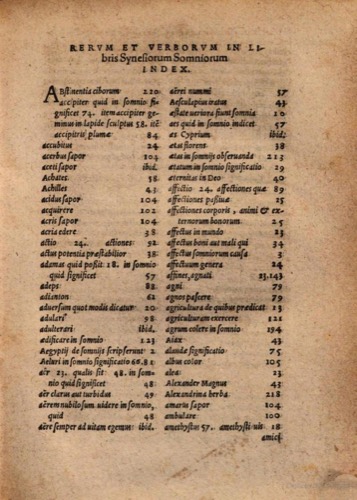 RERVM ET VERBORVM IN LI-
bris Synesiorum Somniorum
INDEX.
ABstinentia ciborum 220
accipiter quid in somnio si-
gnificet 74. item accipiter ge-
minus in lapide sculptus 58. itē
accipitris plumæ 84
accubitus 24
acerbus sapor 103
aceti sapor ibid.
Achates 58
Achilles 43
acidus sapor 104
acquirere 102
acris sapor 104
acria edere 38
actio 24. actiones 92
actus potentia præstabilior 38
adamas quid possit 18. in somnio
quid significet 57
adeps 88
adianton 62
aduersum quot modis dicatur 20
adulari 98
adulterari ibid.
ædificare in somnio 123
Aegyptij de somnijs scripserunt 2
Aeluri in somnio significatio 66.81
aër 23. qualis sit 48. in som-
nio quid significet 48
aër clarus aut turbidus 49
aërem nubilosum uidere in somnio,
quid 48
aëre semper ad uitam egemus ibid.
aërei nummi 57
Aesculapius iratus 43
æstate ueriora fiunt somnia 10
æs quid in somnio indicet 57
æs Cyprium ibid.
ætas florens 38
ætas in somnijs obseruanda 213
ætatum in somnio significatio 29
æternitas in Deo 40
affectio 24. affectiones quæ 89
affectiones pusillæ 25
affectiones corporis, animi & ex-
ternorum bonorum 25
affectus in mundo 23
affectus boni aut mali qui 34
affectus somniorum causa 3
affectuum genera 24
affines, agnati 23.143
agni 79
agnos pascere 79
agricultura de quibus prædicat 13
agriculturam exercere 121
agrum colere in somnio 194
Aiax 43
alaudæ significatio 75
albus color 105
alea 13
Alexander Magnus 43
Alexandrina herba 218
amarus sapor 104
ambulare 100
amethystus 57. amethysti uis 18
amici